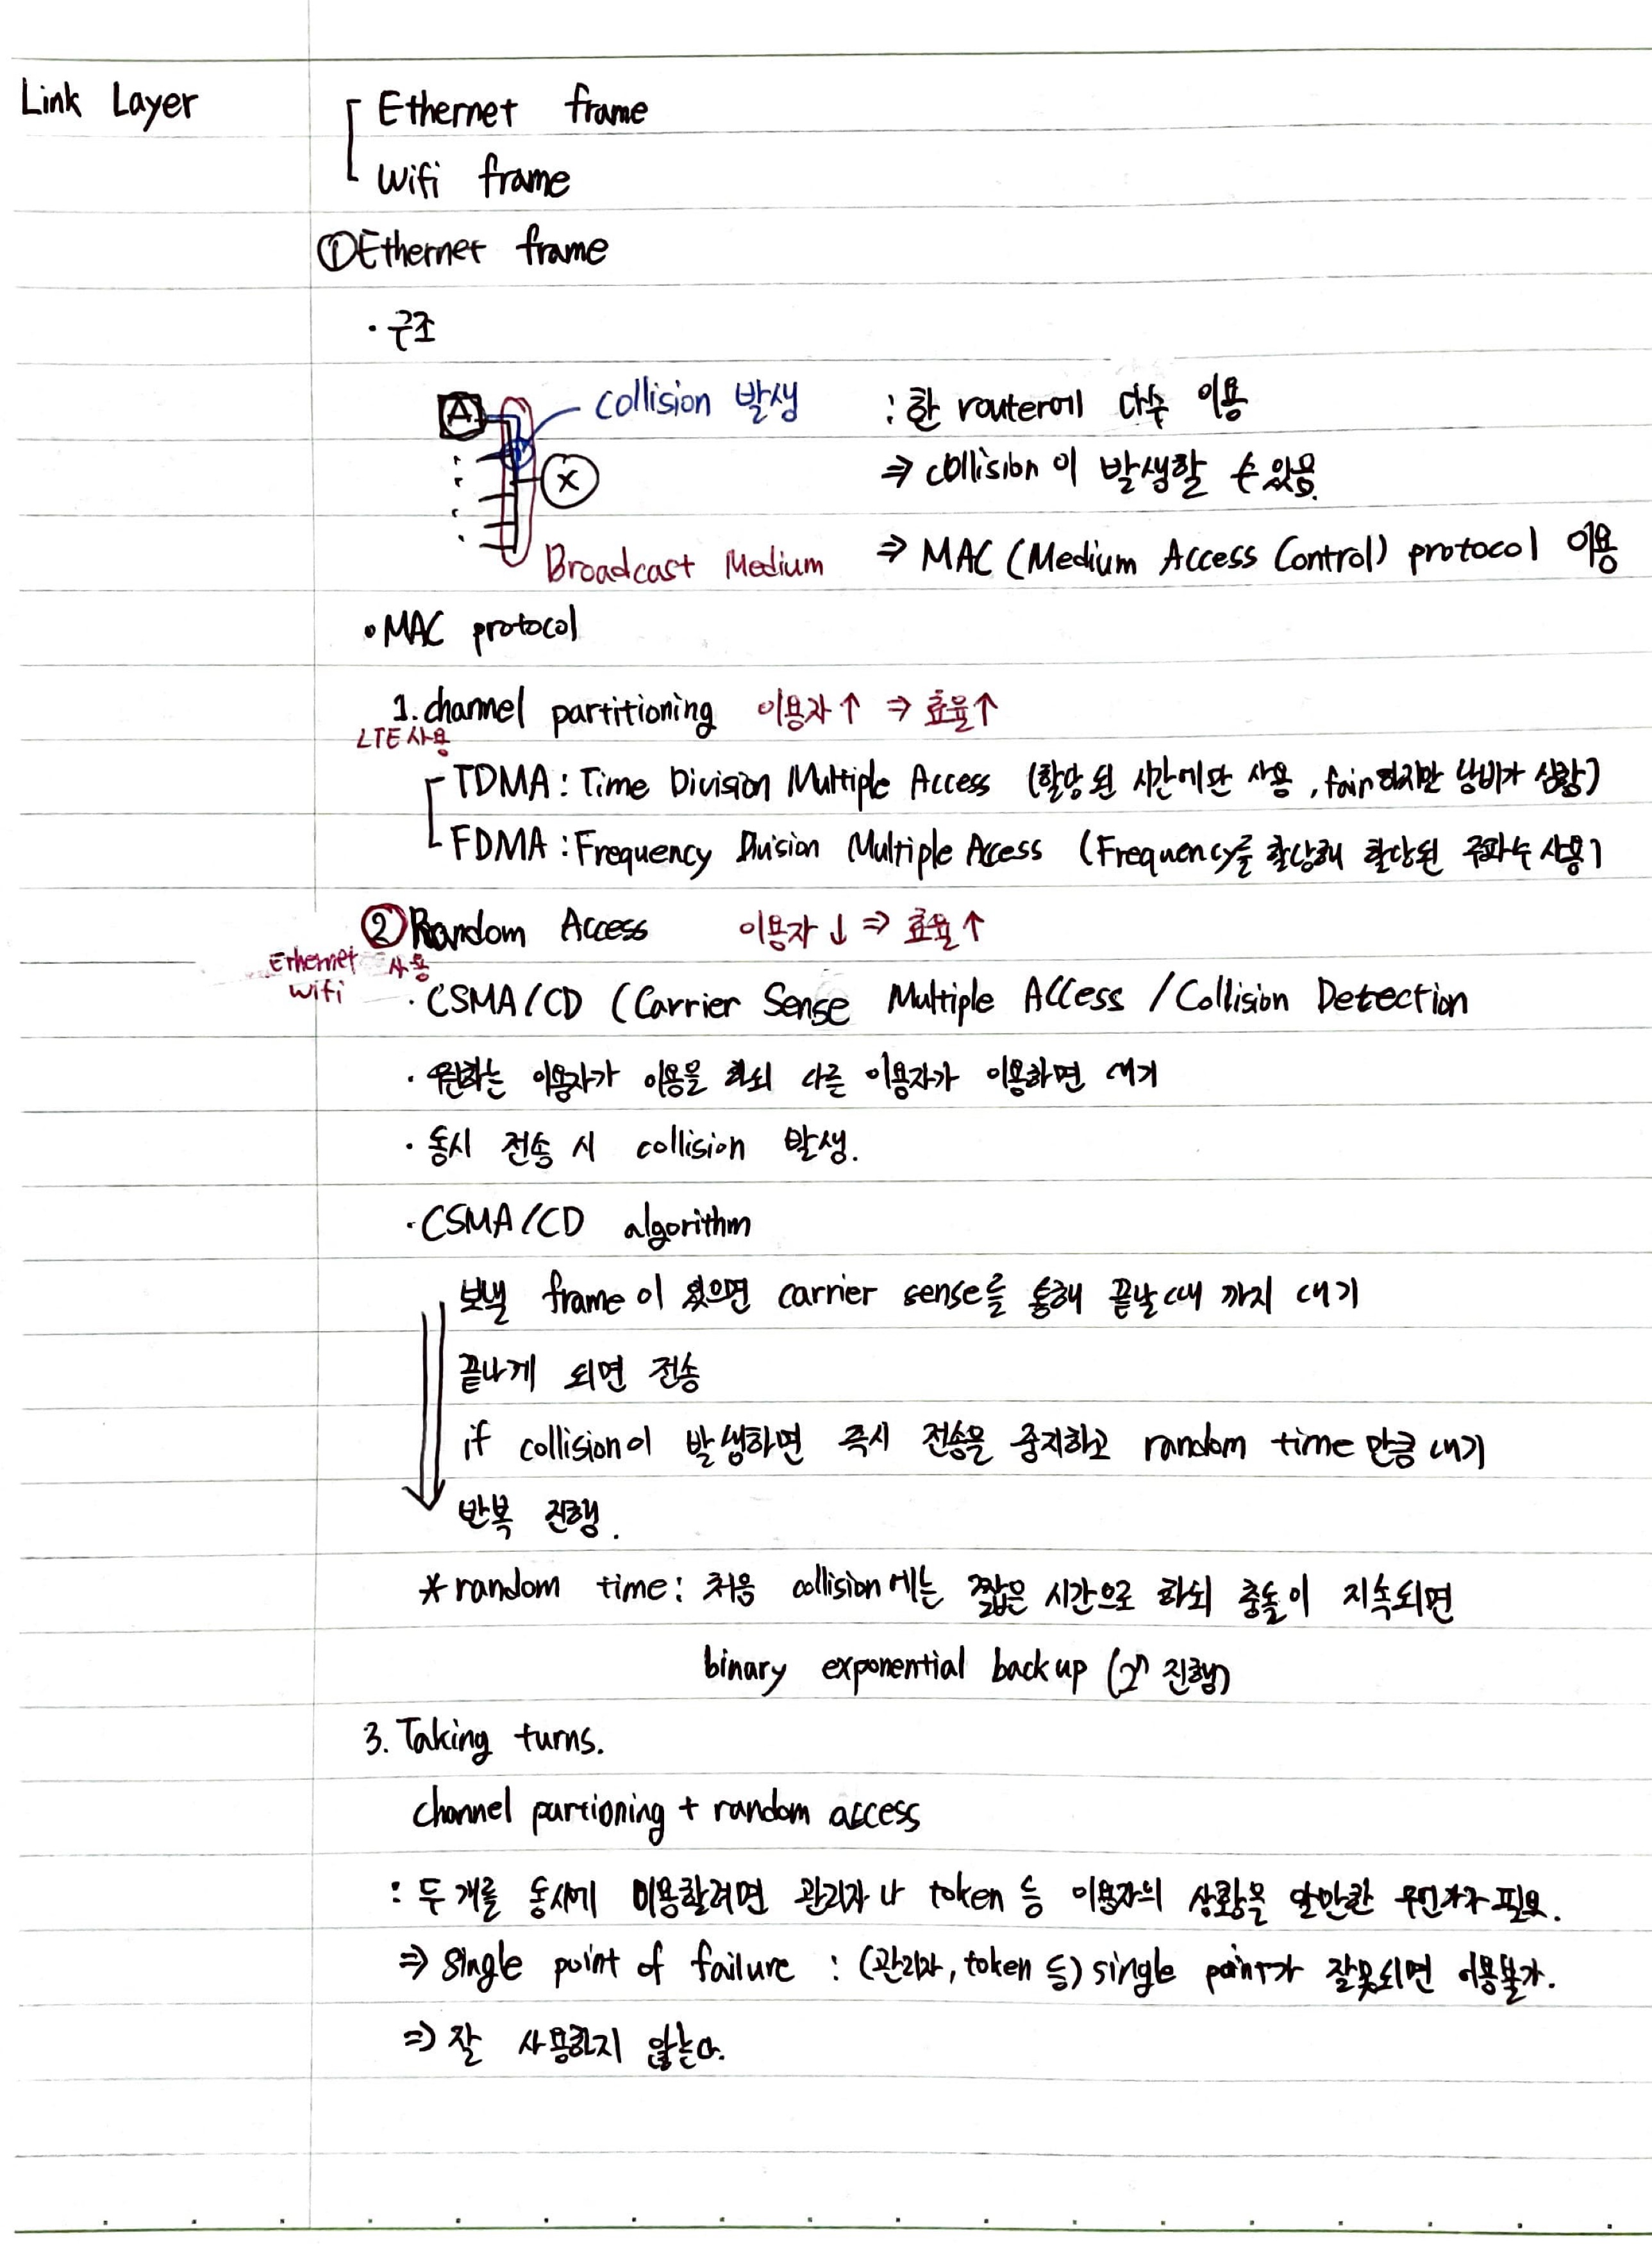 Link Layer
Ethernet frame
Wifi frame
① Ethernet frame
· 구조
A
collision 발생
: 한 router에 다수 이용
X
⇒ collision이 발생할 수 있음.
Broadcast Medium
⇒ MAC (Medium Access Control) protocol 이용
• MAC protocol
1. channel partitioning 이용자↑ ⇒ 효율↑
LTE 사용
TDMA : Time Division Multiple Access (할당 된 시간에만 사용, fair 하지만 낭비가 심함)
FDMA : Frequency Division Multiple Access (Frequency를 할당해 할당된 주파수 사용)
② Random Access 이용자↓ ⇒ 효율↑
Ethernet 사용
wifi
· CSMA/CD (Carrier Sense Multiple Access / Collision Detection
· 원하는 이용자가 이용을 하되 다른 이용자가 이용하면 대기
· 동시 전송 시 collision 발생.
· CSMA/CD algorithm
보낼 frame이 있으면 carrier sense를 통해 끝날때 까지 대기
끝나게 되면 전송
if collision이 발생하면 즉시 전송을 중지하고 random time 만큼 대기
반복 진행.
* random time : 처음 collision에는 짧은 시간으로 하되 충돌이 지속되면
binary exponential back up (2ⁿ 진행)
3. Taking turns.
channel partioning + random access
: 두 개를 동시에 이용할려면 관리자 나 token 등 이용자의 상황을 알만한 무언가가 필요.
⇒ single point of failure : (관리자, token 등) single point가 잘못되면 이용불가.
⇒ 잘 사용하지 않는다.